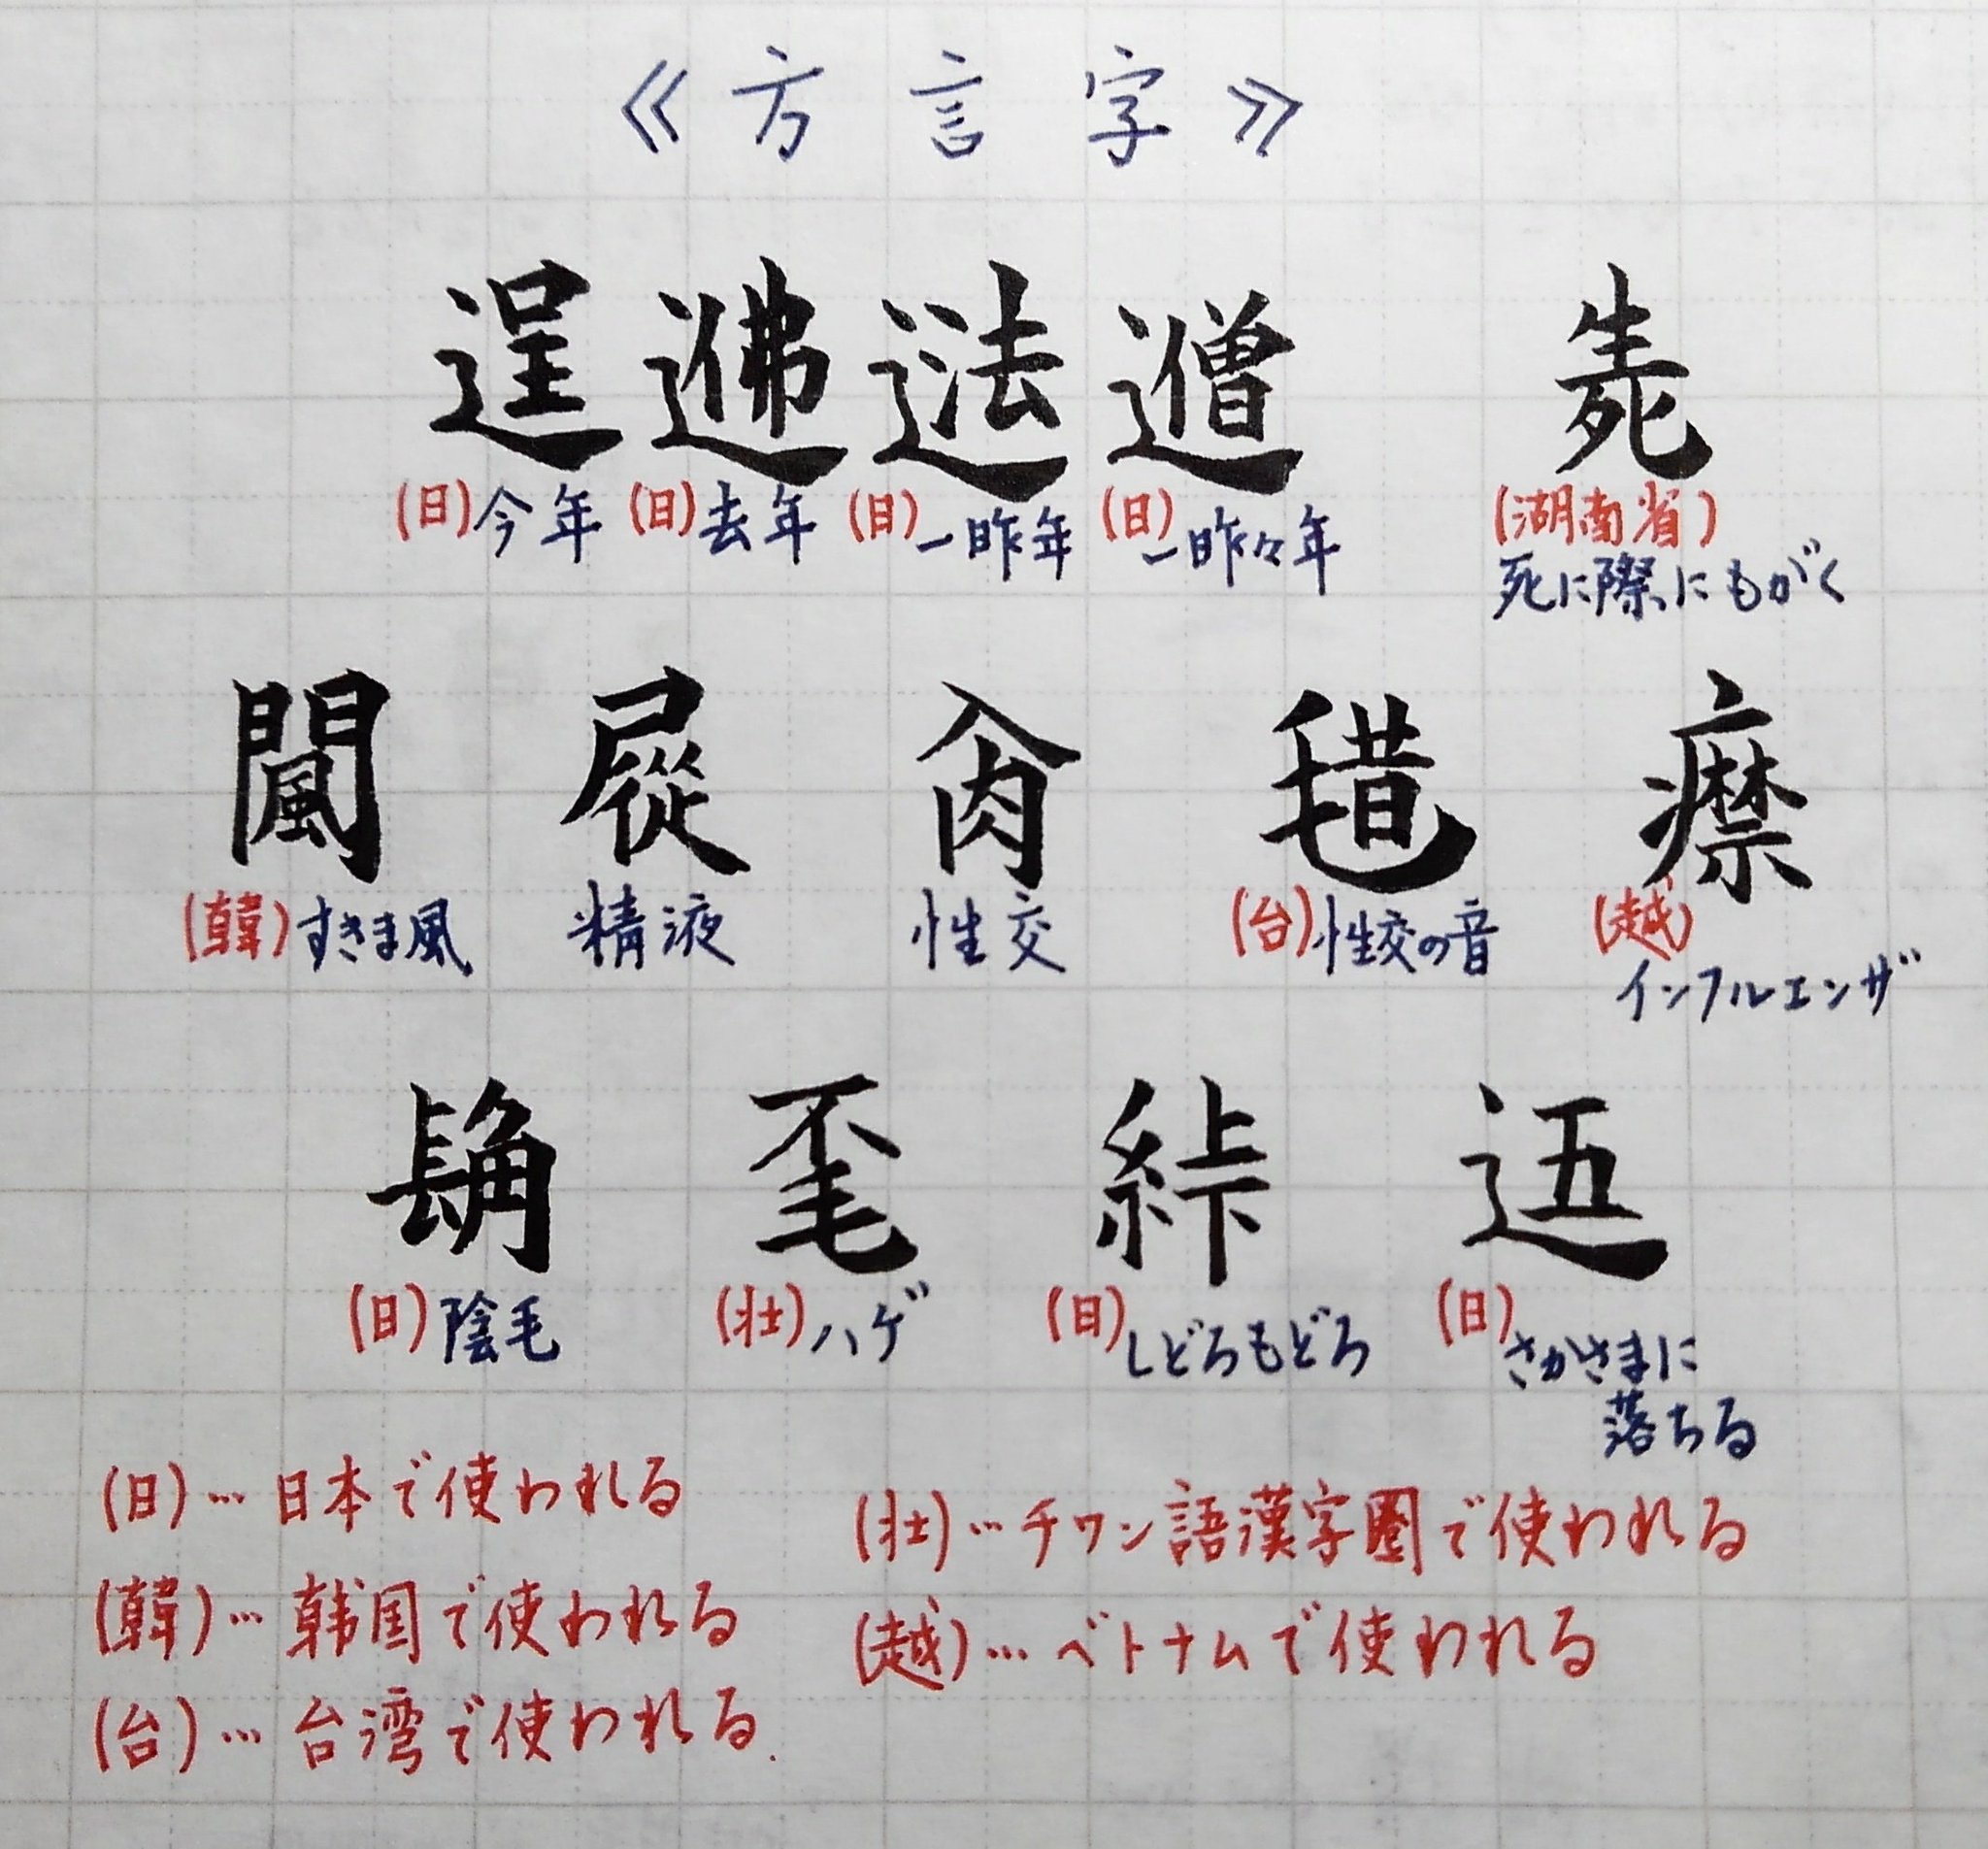 《方言字》
逞
(日)今年 (日)去年 (日)一昨年 (日)一昨々年 (湖南省)
死に際にもがく
𡳞 肏
(韓)すきま風 精液 性交 (台)性交の音 (越)
インフルエンザ
(日)陰毛 (壮)ハゲ (日)しどろもどろ (日)さかさまに
落ちる
(日)…日本で使われる
(韓)…韓国で使われる
(台)…台湾で使われる.
(壮)…チワン語漢字圏で使われる
(越)…ベトナムで使われる